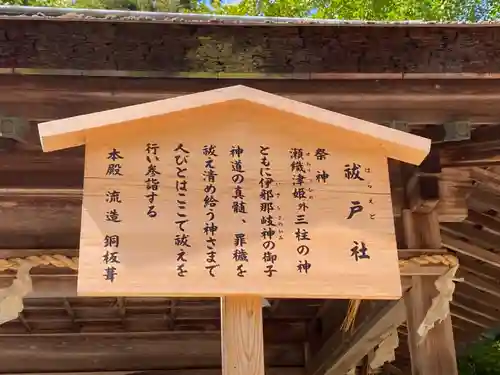 祓戸社
はらえど
祭神
瀬織津姫外三柱の神
ともに伊邪那岐神の御子
神道の真髄、罪穢を
祓え清め給う神さまで
人びとはここで祓えを
行い参詣する
本殿 流造 銅板葺